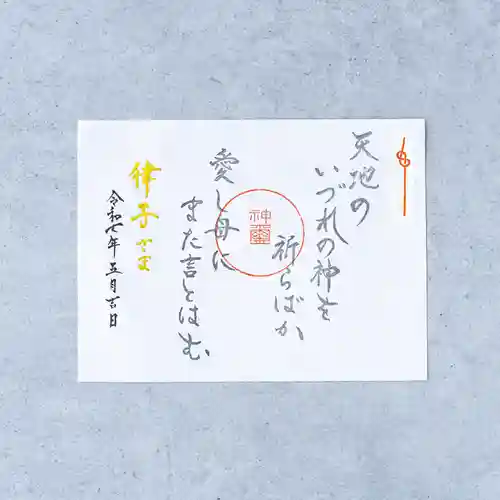 天地の
いづれの神を
祈らばか
愛し母に
また言とはむ
神璽
律子さま
令和七年五月吉日